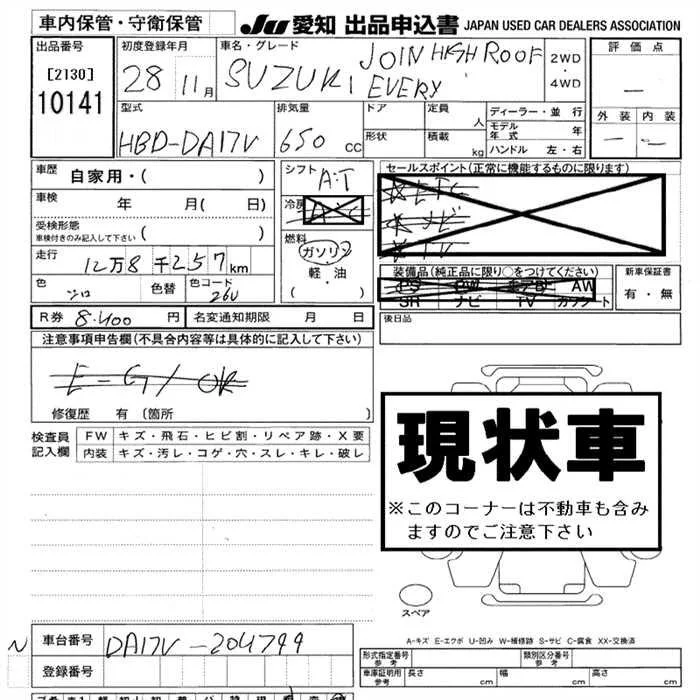 車内保管・守衛保管
JU 愛知 出品申込書 JAPAN USED CAR DEALERS ASSOCIATION
出品番号
[2130]
10141
初度登録年月
28 11月
車名・グレード
JOIN HIGH ROOF
SUZUKI EVERY
2WD
・
4WD
評価点
—
外装 内装
— —
型式
HBD-DA17V
排気量
650 cc
ドア
定員
人
形状
積載
kg
ディーラー・並行
モデル年式 年
ハンドル 左・右
車歴 自家用・( )
車検 年 月( 日)
受検形態
車検付きのみ記入して下さい ( )
走行 12万8千257km
色 シロ 色替 色コード 26U
シフト A・T
冷房 A・C
燃料
ガソリン
軽・油
( )
セールスポイント(正常に機能するものに限ります)
ETC
ナビ
TV
装備品(純正品に限り○をつけてください)
PS PW エアB AW
SR ナビ TV カワシート
新車保証書
有・無
R券 8.400 円 名変通知期限 月 日
後日品
注意事項申告欄(不具合内容等は具体的に記入して下さい)
E-G/OK
修復歴 有〔箇所 〕
検査員
記入欄
FW キズ・飛石・ヒビ割・リペア跡・X要
内装 キズ・汚レ・コゲ・穴・スレ・キレ・破レ
現状車
※このコーナーは不動車も含み
ますのでご注意下さい
スペア
A-キズ E-エクボ U-凹み W-補修跡 S-サビ C-腐食 XX-交換済
N
車台番号 DA17V-204799
登録番号
形式指定番号
参考
類別区分番号
参考
車庫証明用
参考
長さ cm 幅 cm 高さ cm